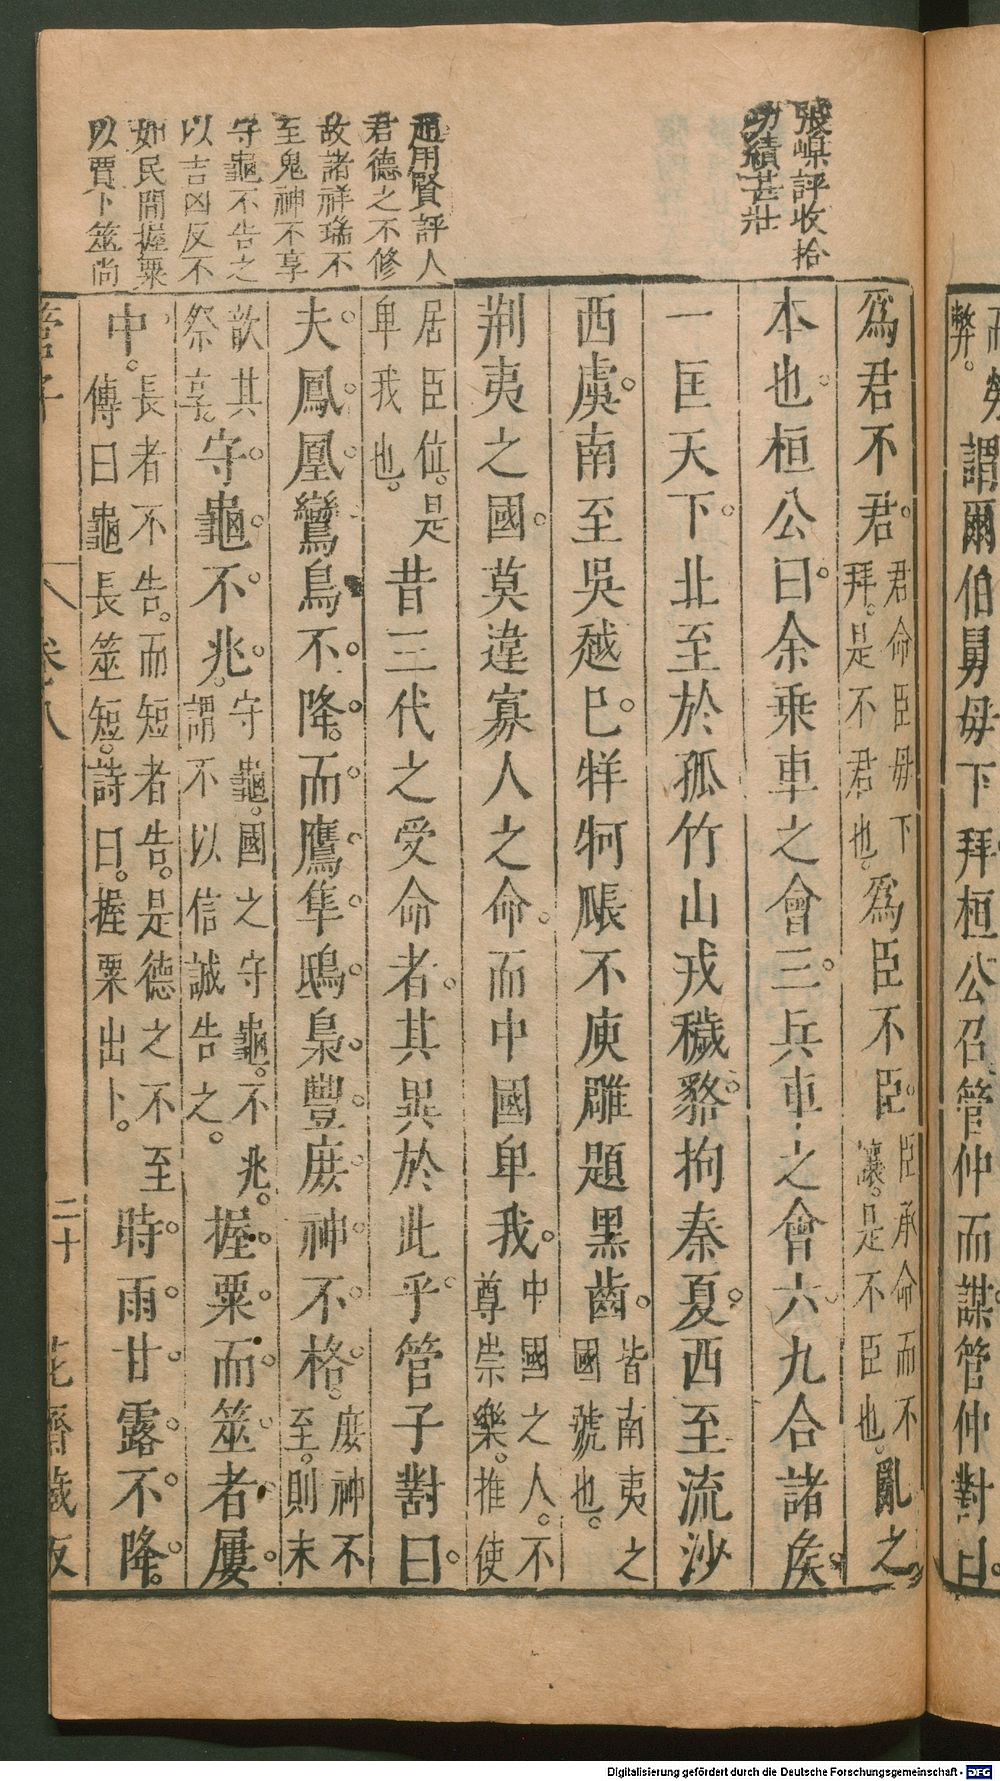 弊。謂爾伯舅毋下拜桓公召管仲而謀管仲對曰
張嵲評收拾
功績甚壯
趙用賢評人
君德之不修
故諸祥瑞不
至鬼神不享
守龜不告之
以吉凶反不
如民間握粟
以賈卜筮尚
爲君不君君命臣毋下拜。是不君也。爲臣不臣臣承命而不讓。是不臣也。亂之
本也桓公曰余乘車之會三兵車之會六九合諸矦
一匡天下北至於孤竹山戎穢貉拘秦夏西至流沙
西虞南至吳越巴牂牁䝠不庾雕題黑齒皆南夷之國號也。
荆夷之國莫違寡人之命而中國卑我中國之人。不尊崇樂。推使
居臣位。是卑我也。昔三代之受命者其異於此乎管子對曰
夫鳳凰鸞鳥不降而鷹隼鴟梟豐庶神不格庶神不至。則末
歆其祭享。守龜不兆守龜。國之守龜。不兆。謂不以信誠告之。握粟而筮者屢
中。長者不告。而短者告。是德之不至傳曰龜長筮短。詩曰。握粟出卜。時雨甘露不降
管子
卷八
二十
花齋藏板
Digitalisierung gefördert durch die Deutsche Forschungsgemeinschaft - DFG